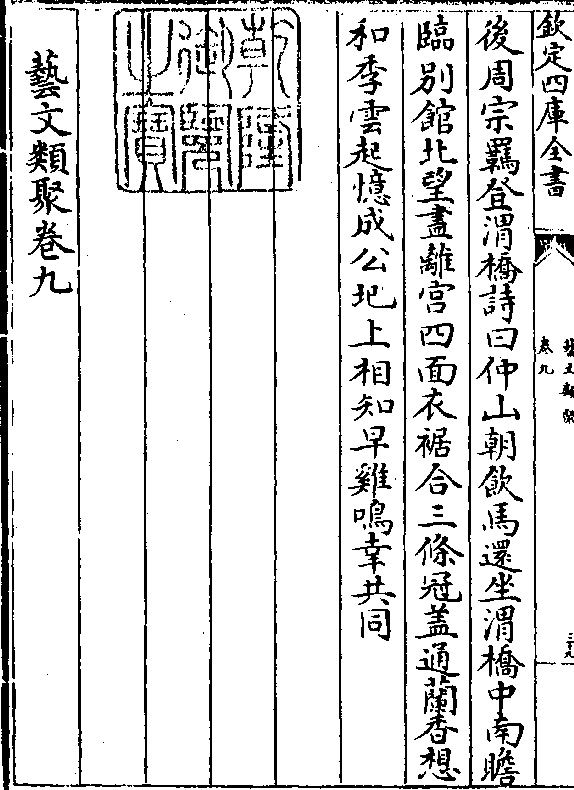 欽定四庫全書
藝文類聚
卷九
三十九
後周宗羈登渭橋詩曰仲山朝飲馬還坐渭橋中南瞻
臨別館北望盡離宮四面衣裾合三條冠盖通蘭香想
和季雲起憶成公圯上相知早雞鳴幸共同
乾隆御覽之寶
藝文類聚卷九